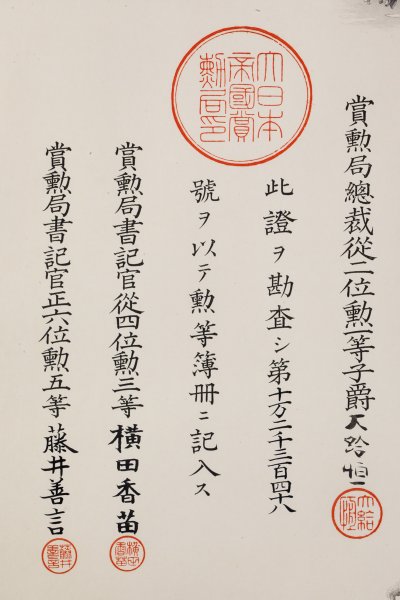 大日本
帝國賞
勳局印
賞勳局總裁從二位勳一等子爵大給恒
大給
恒
此證ヲ勘査シ第十万二千三百四十八
號ヲ以テ勳等簿册ニ記入ス
賞勳局書記官從四位勳三等横田香苗
横田
香苗
賞勳局書記官正六位勳五等藤井善言
藤井
善言